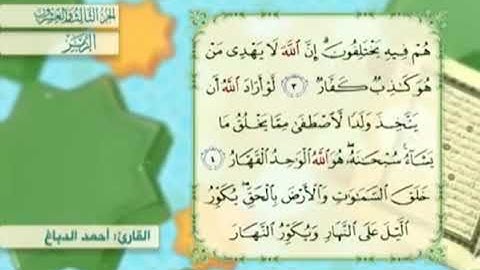 الجزء الثالث والعشرون
الزمر
هُمْ فِيهِ يَخْتَلِفُونَ ۗ إِنَّ اللَّهَ لَا يَهْدِي مَنْ
هُوَ كَٰذِبٌ كَفَّارٌ ٣ لَّوْ أَرَادَ اللَّهُ أَن
يَتَّخِذَ وَلَدًا لَّاصْطَفَىٰ مِمَّا يَخْلُقُ مَا
يَشَاءُ ۚ سُبْحَٰنَهُ ۖ هُوَ اللَّهُ الْوَٰحِدُ الْقَهَّارُ ٤
خَلَقَ السَّمَٰوَٰتِ وَالْأَرْضَ بِالْحَقِّ ۖ يُكَوِّرُ
الَّيْلَ عَلَى النَّهَارِ وَيُكَوِّرُ النَّهَارَ
القارئ: أحمد الدباغ